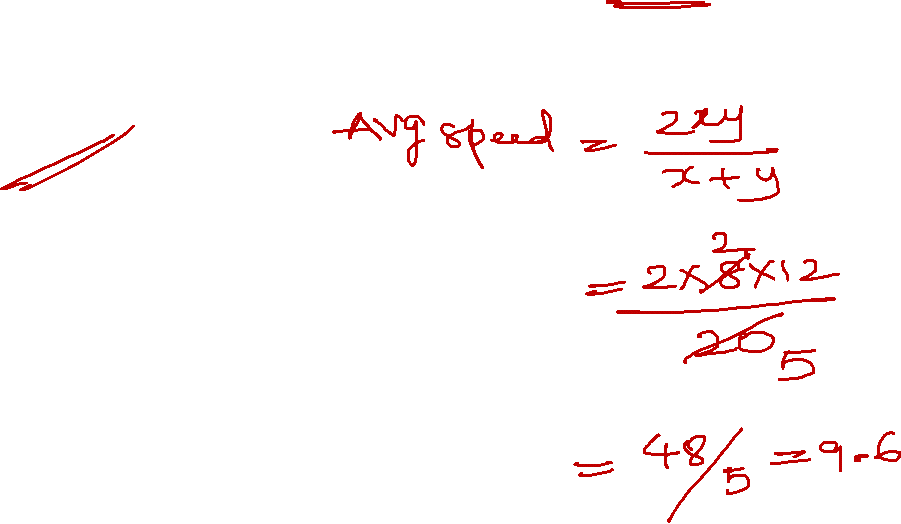 Avg speed = 2xy / x+y
= 2×8×12 / 20 2 5
= 48/5 = 9.6